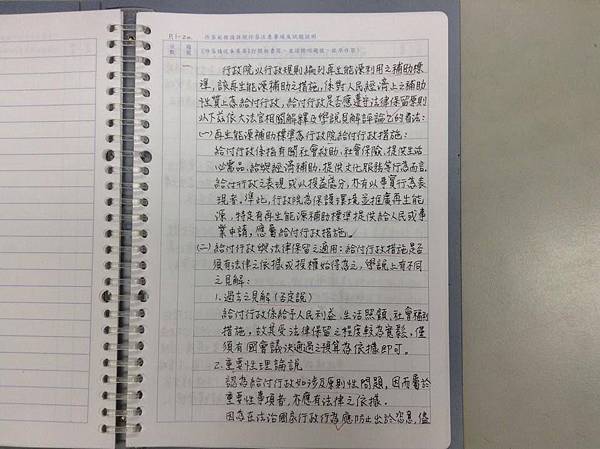 P.1-2a
一
行政院以行政規則編列再生能源利用之補助標
準,該再生能源補助之措施,係對人民經濟上之補助
性質上為給付行政,給付行政是否應遵守法律保留原則
以下茲依大法官相關解釋及學說見解評論乙的看法:
(一)再生能源補助標準為行政院給付行政措施:
給付行政係指有關社會救助、社會保險、提供生活
必需品、給與經濟補助、提供文化服務等行為而言。
給付行政之表現或以授益處分,亦有以事實行為表
現者。準此,行政院為保護環境並推廣再生能
源,特定有再生能源補助標準提供給人民或事
業申請,應屬給付行政措施。
(二)給付行政與法律保留之適用:給付行政措施是否
須有法律之依據或授權始得為之,學說上有不同
之見解:
1.過去之見解(否定說)
給付行政係給予人民利益、生活照顧、社會福利
措施,故其受法律保留之程度較為寬鬆,僅
須有國會議決通過之預算為依據即可。
2.重要性理論說
認為給付行政如涉及原則性問題,因而屬於
重要性事項者,亦應有法律之依據。
因為在法治國家行政行為應防止出於恣意,儘